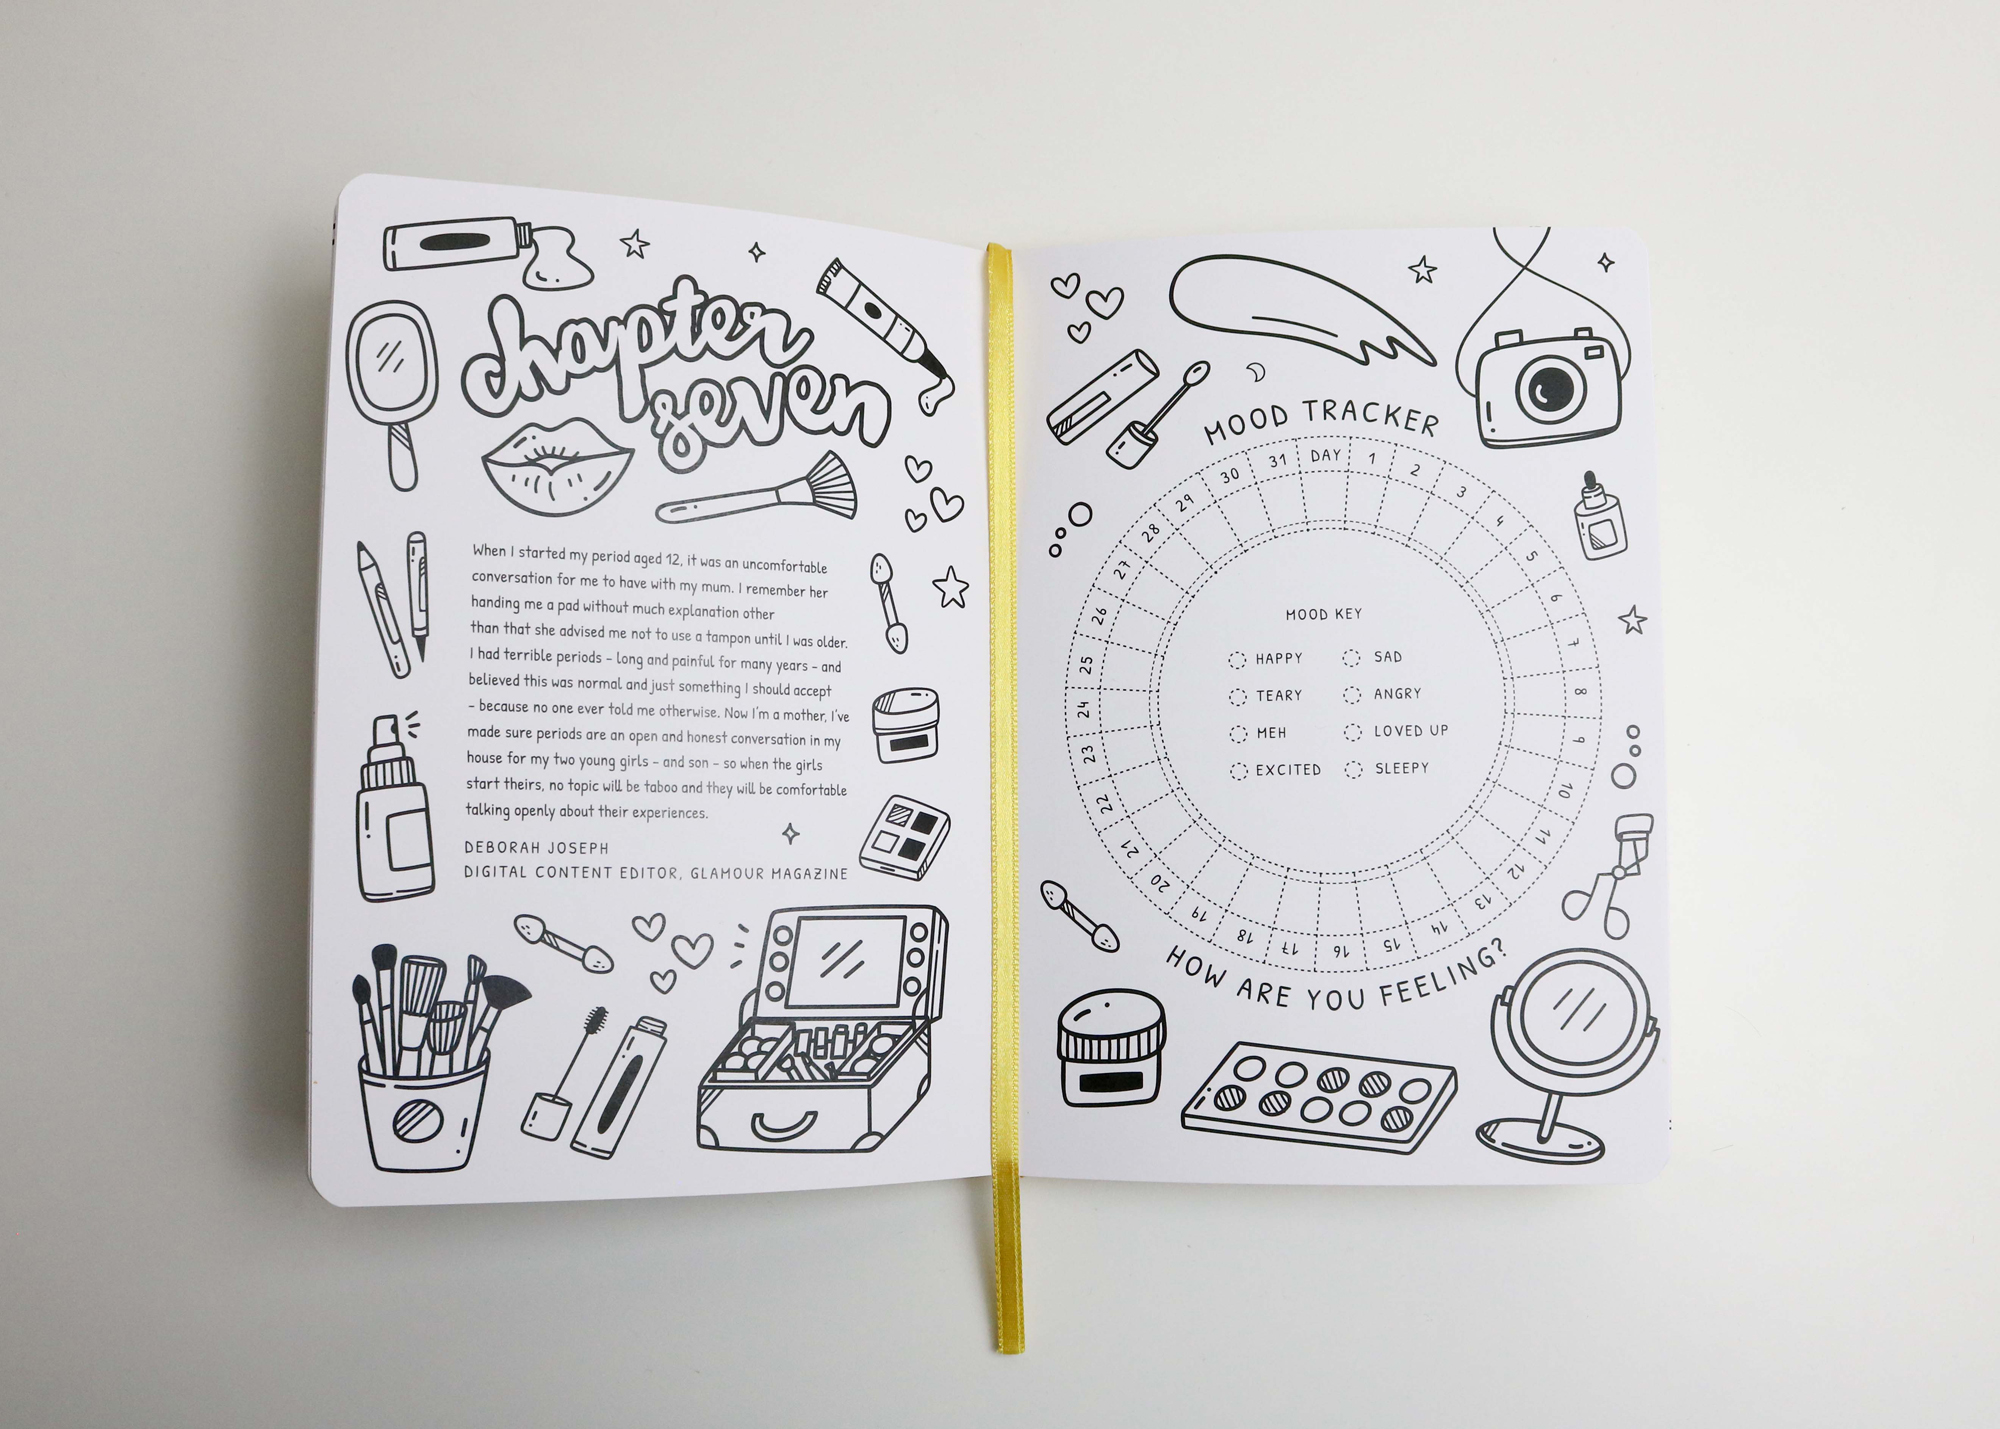 chapter
seven
When I started my period aged 12, it was an uncomfortable
conversation for me to have with my mum. I remember her
handing me a pad without much explanation other
than that she advised me not to use a tampon until I was older.
I had terrible periods – long and painful for many years – and
believed this was normal and just something I should accept
– because no one ever told me otherwise. Now I'm a mother, I've
made sure periods are an open and honest conversation in my
house for my two young girls – and son – so when the girls
start theirs, no topic will be taboo and they will be comfortable
talking openly about their experiences.
DEBORAH JOSEPH
DIGITAL CONTENT EDITOR, GLAMOUR MAGAZINE
MOOD TRACKER
DAY 1 2 3 4 5 6 7 8 9 10 11 12 13 14 15 16 17 18 19 20 21 22 23 24 25 26 27 28 29 30 31
MOOD KEY
HAPPY SAD
TEARY ANGRY
MEH LOVED UP
EXCITED SLEEPY
HOW ARE YOU FEELING?